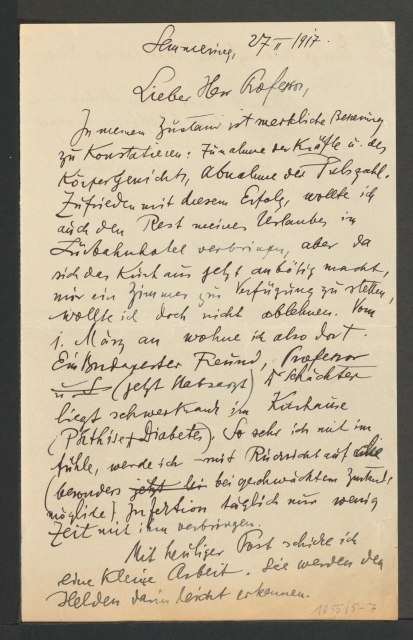 Semmering, 27 II 1917.
Lieber Herr Professor,
In meinem Zustand ist merkliche Besserung
zu konstatieren: Zunahme der Kräfte u. des
Körpergewichts, Abnahme der Pulszahl.
Zufrieden mit diesem Erfolg, wollte ich
auch den Rest meines Urlaubes im
Südbahnhotel verbringen, aber da
sich das Kurhaus jetzt anbötig macht,
mir ein Zimmer zur Verfügung zu stellen,
wollte ich doch nicht ablehnen. Vom
1. März an wohne ich also dort.
Ein Budapester Freund, Professor
(jetzt Stabsarzt) Dr Schächter
liegt schwerkrank im Kurhause
(Phthise + Diabetes). So sehr ich mit ihm
fühle, werde ich – mit Rücksicht auf die
(besonders jetzt bei geschwächtem Zustande
mögliche) Infektion täglich nur wenig
Zeit mit ihm verbringen.
Mit heutiger Post schicke ich
eine kleine Arbeit. Sie werden den
Helden darin leicht erkennen.
1055/5-7